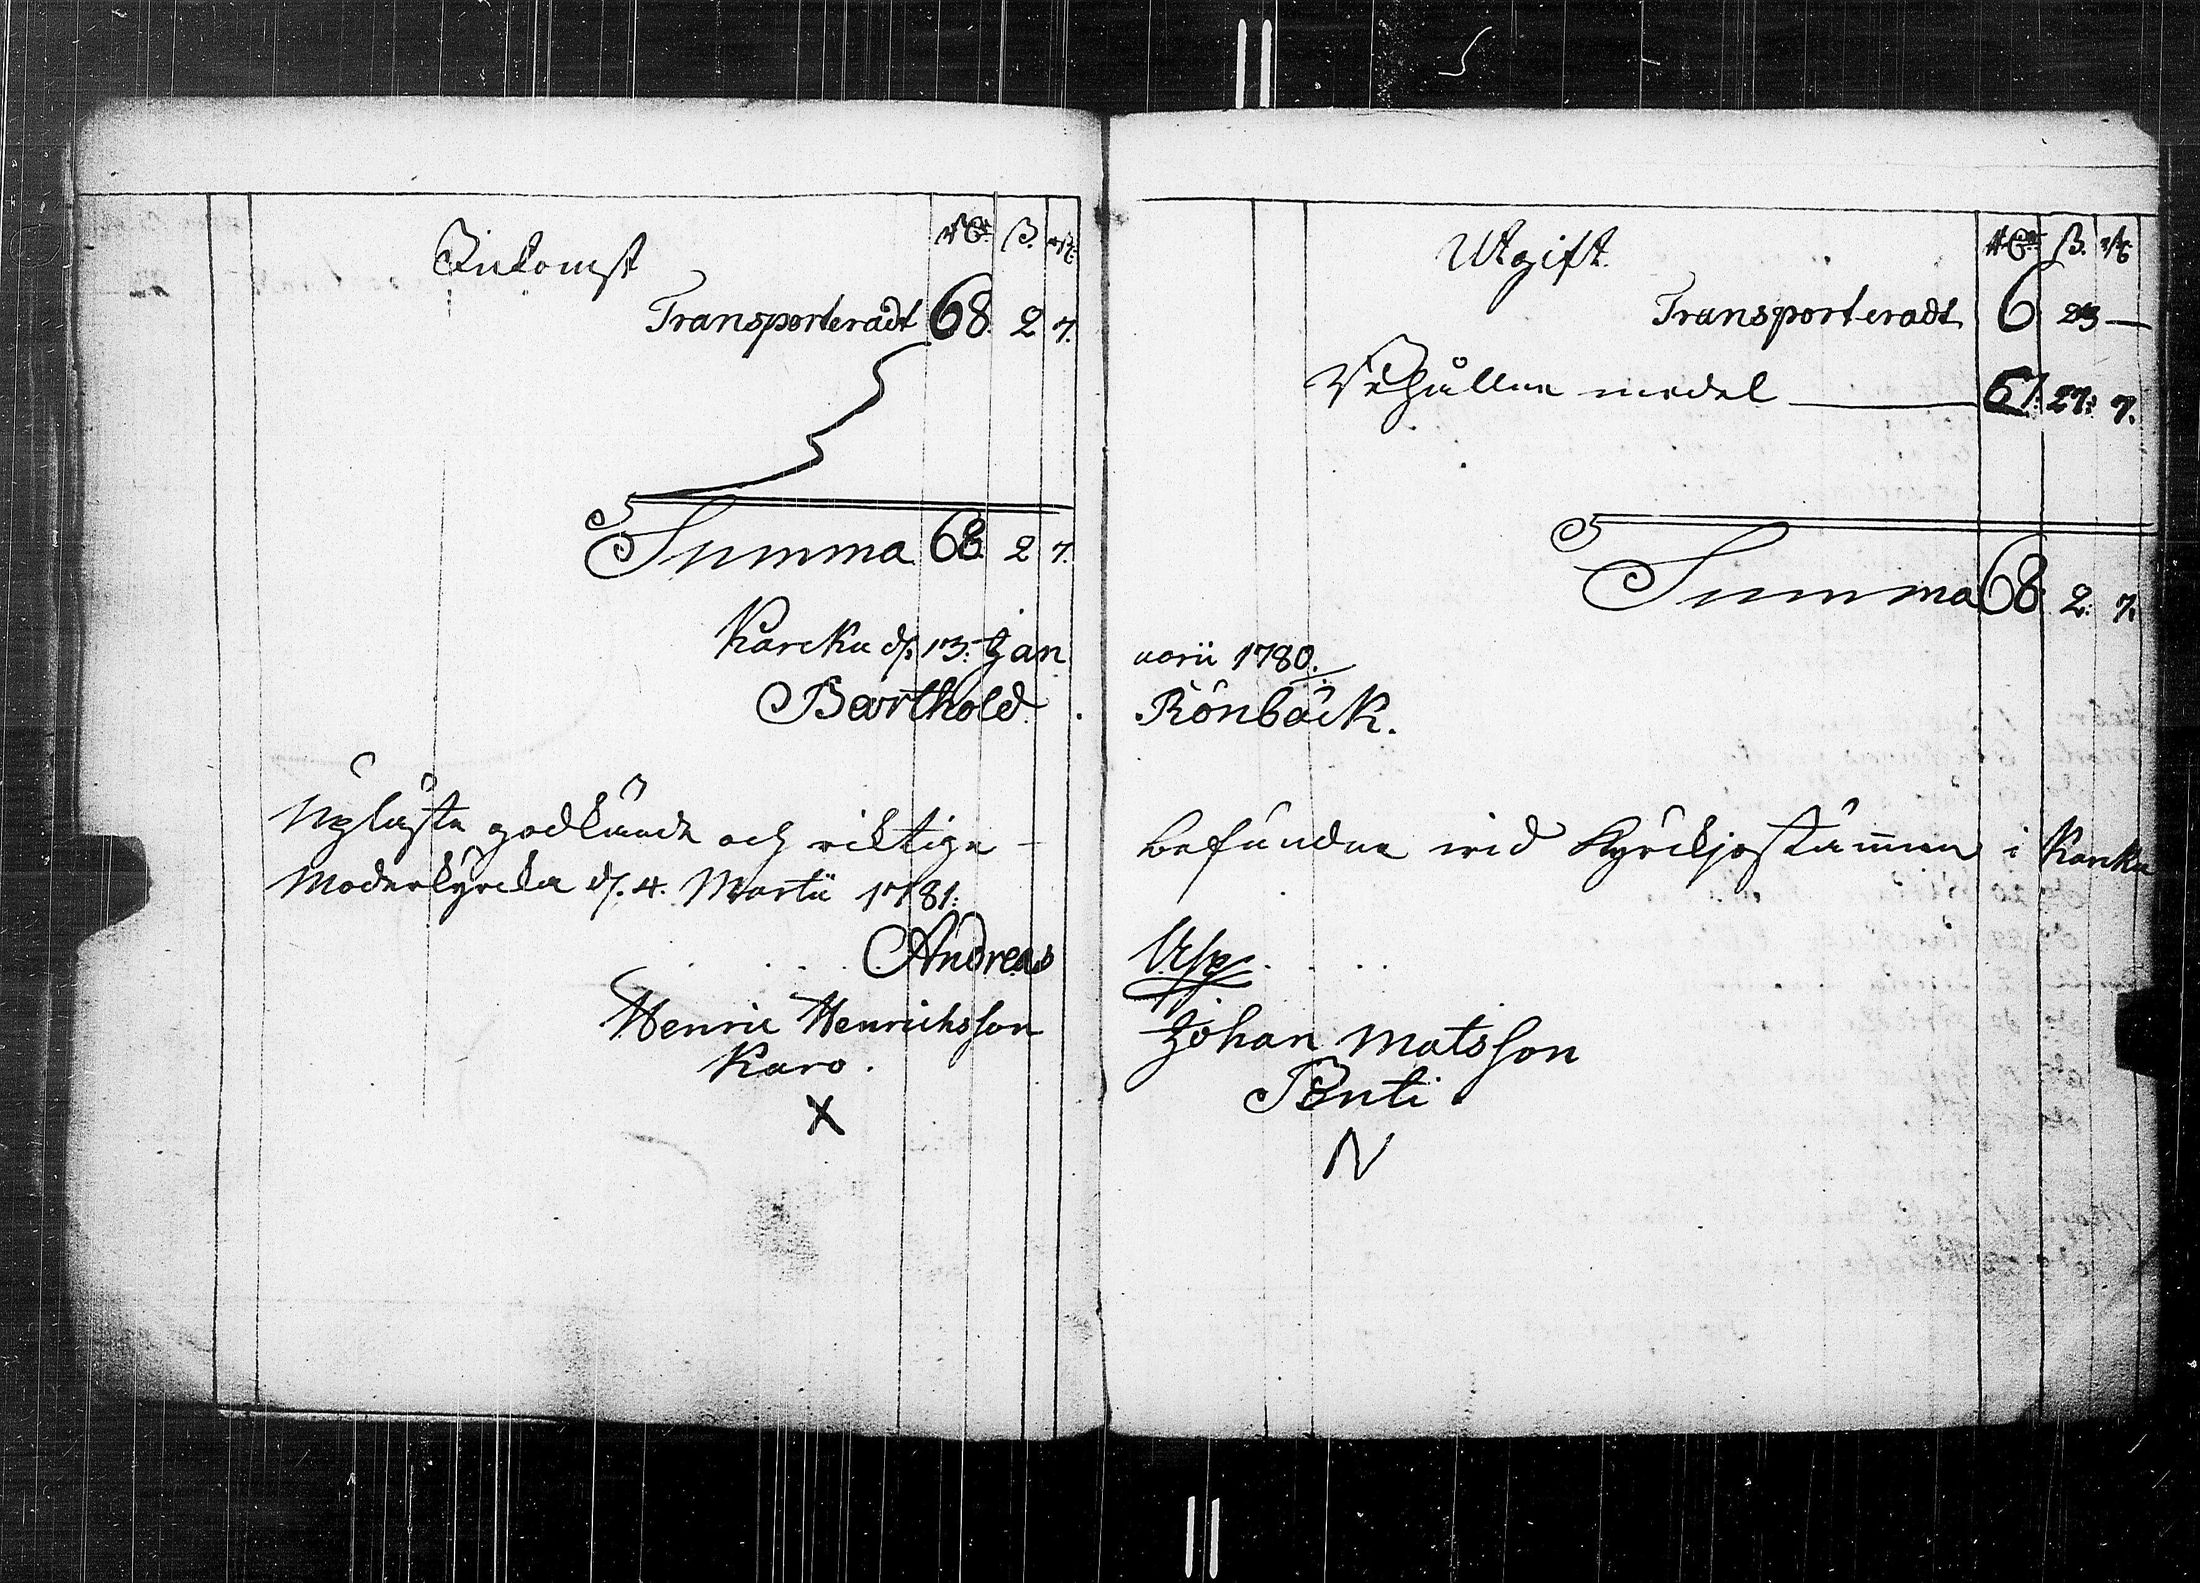 Inkomst
Rd. ß. rst.
Transporteradt 68. 2 7.
Summa 68. 2 7.
Karcku d. 13. Jan
Barthold
Upläste godkände och riktige
Moderkyrcka d. 4. Martii 1781.
Andreas
Henric Henrichsson
Karo.
X
Utgift.
Rd. ß. rst.
Transporteradt 6 23 —
Behållne medel 61. 27. 7.
Summa 68. 2. 7.
uarii 1780.
Rönbäck.
befundne wid Kyrckjostämman i Karcku
Asp
Johan Matsson
Penti
N